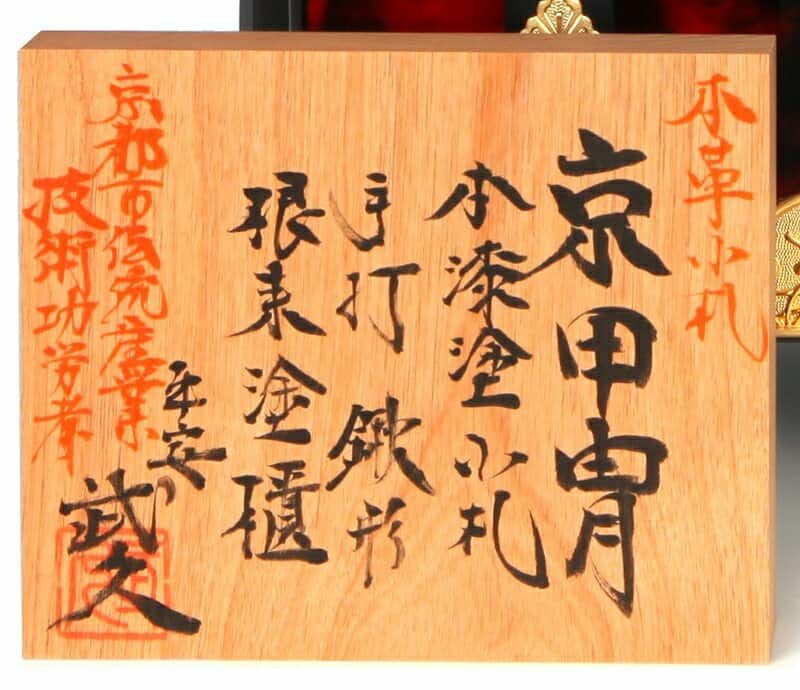 本革小札
京甲冑
本漆塗小札
手打鍬形
根来塗櫃
平安
武久
京都市伝統産業
技術功労者